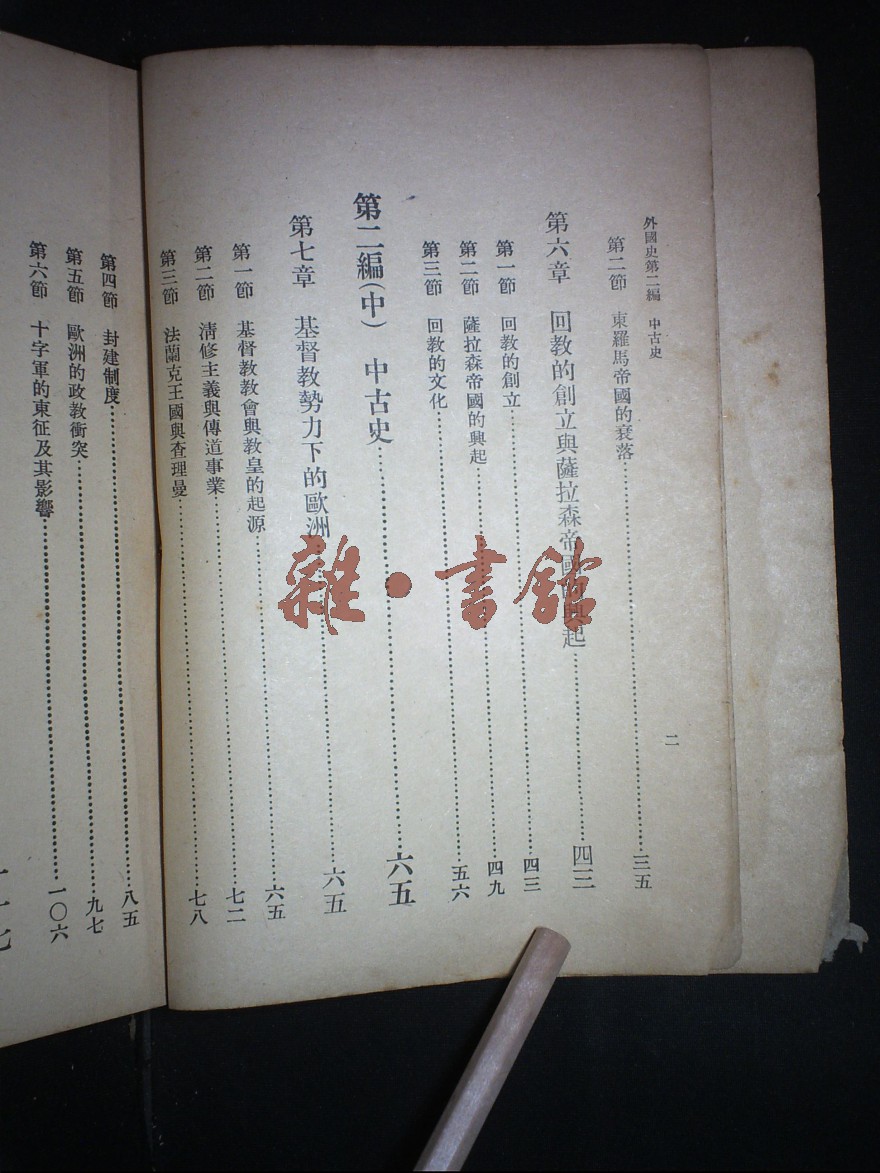 外國史第二編　中古史
二
第二節　東羅馬帝國的衰落……三五
第六章　回教的創立與薩拉森帝國的興起……四三
第一節　回教的創立……四三
第二節　薩拉森帝國的興起……四九
第三節　回教的文化……五六
第二編(中)　中古史……六五
第七章　基督教勢力下的歐洲……六五
第一節　基督教教會與教皇的起源……六五
第二節　淸修主義與傳道事業……七二
第三節　法蘭克王國與查理曼……七八
第四節　封建制度……八五
第五節　歐洲的政教衝突……九七
第六節　十字軍的東征及其影響……一〇六
雜·書館